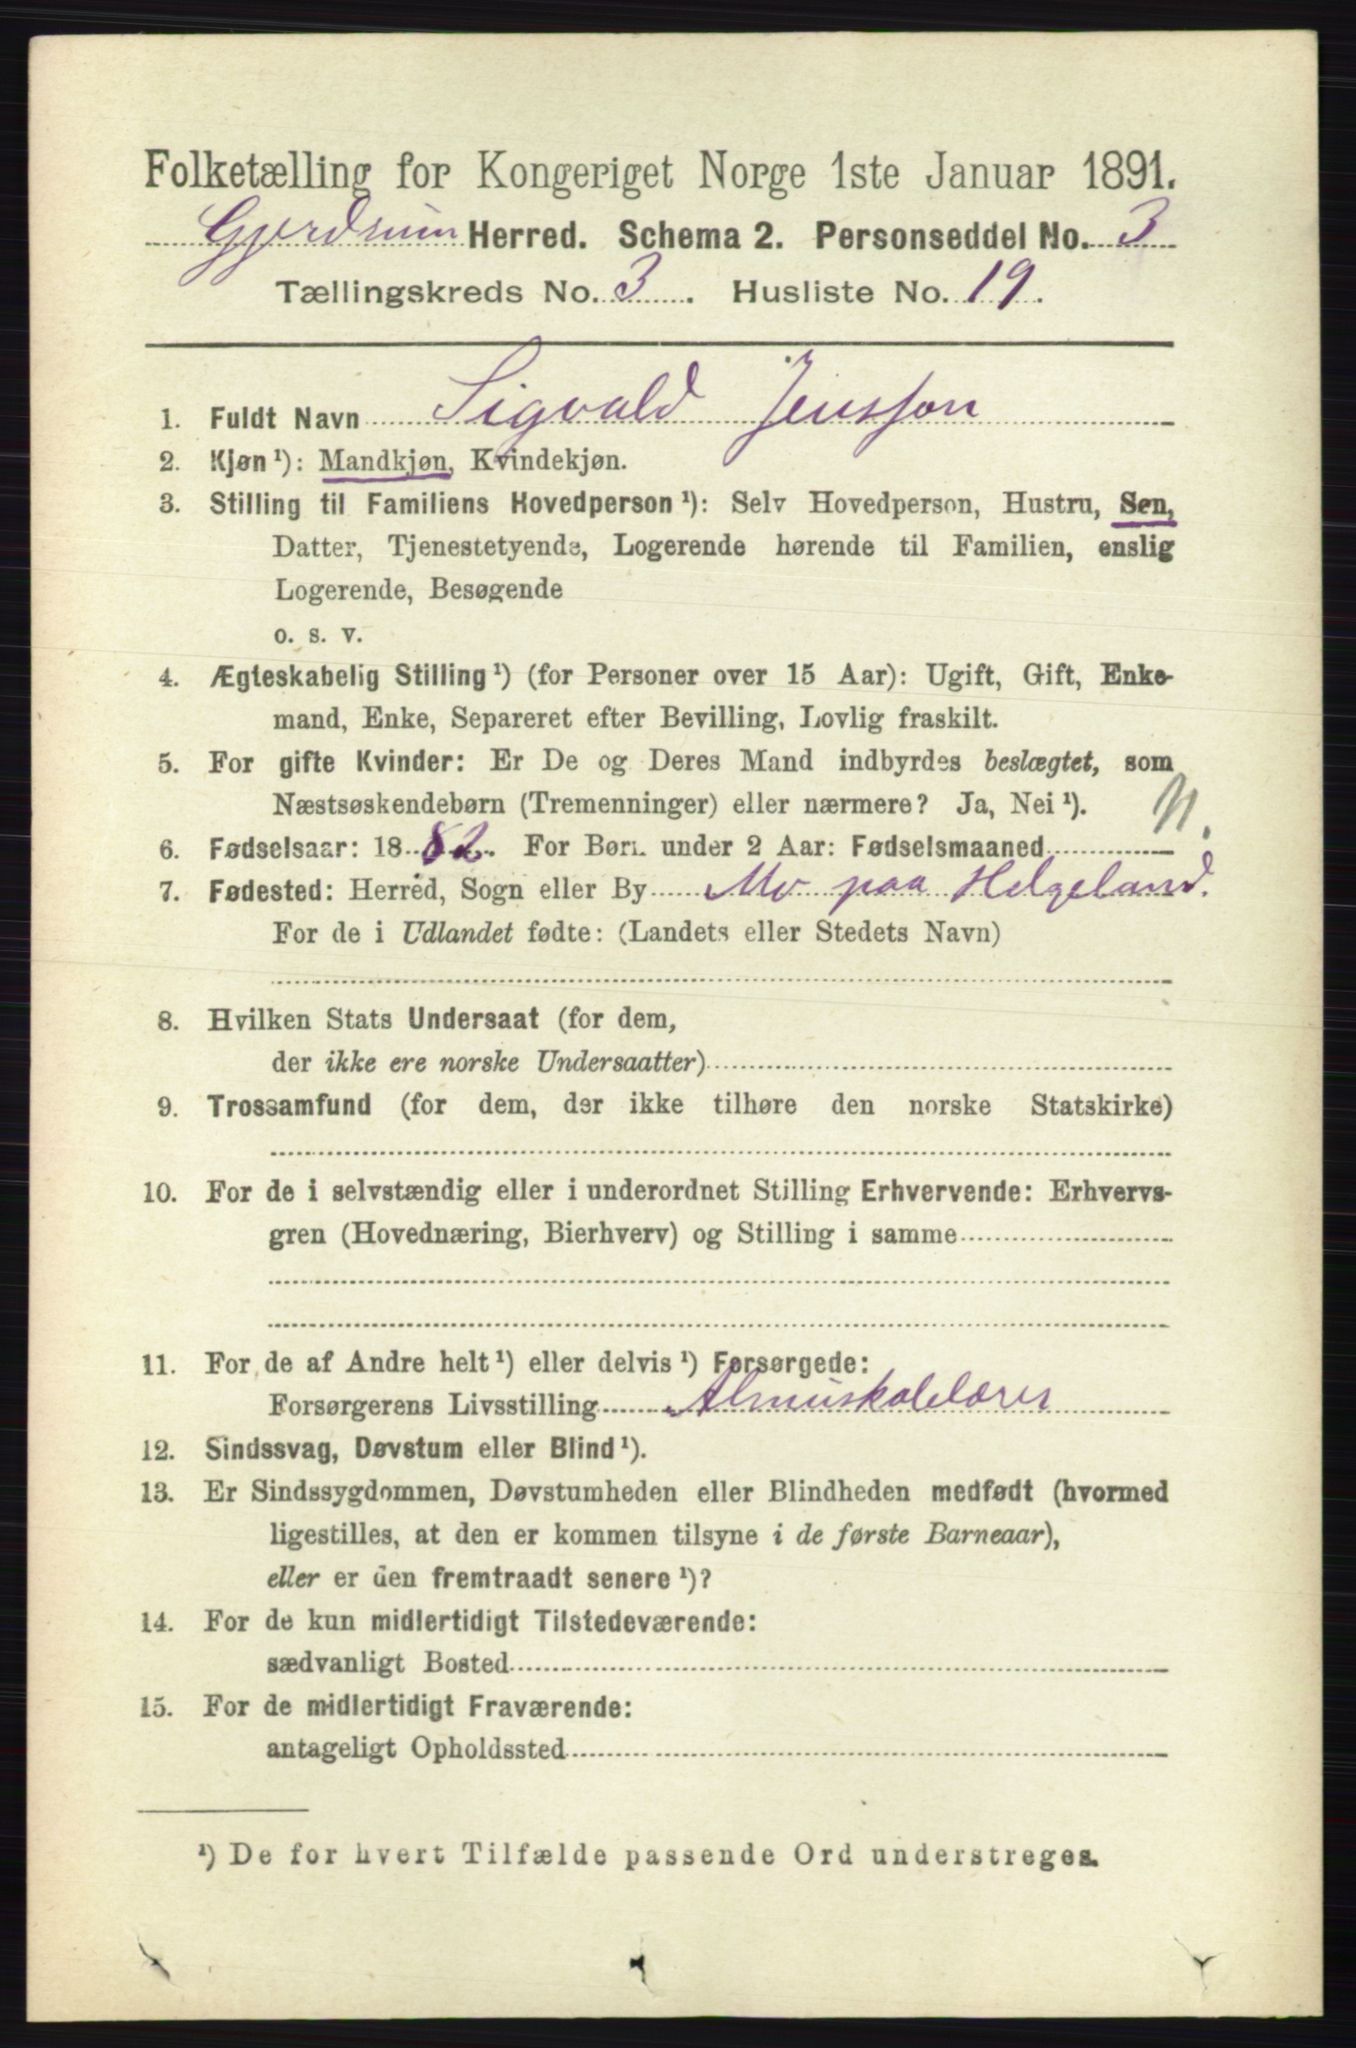 Folketælling for Kongeriget Norge 1ste Januar 1891.
Gjerdrum Herred. Schema 2. Personseddel No. 3
Tællingskreds No. 3. Husliste No. 19.
1. Fuldt Navn Sigvald Jensson
2. Kjøn ¹): Mandkjøn, Kvindekjøn.
3. Stilling til Familiens Hovedperson ¹): Selv Hovedperson, Hustru, Søn,
Datter, Tjenestetyende, Logerende hørende til Familien, enslig
Logerende, Besøgende
o. s. v.
4. Ægteskabelig Stilling ¹) (for Personer over 15 Aar): Ugift, Gift, Enke-
mand, Enke, Separeret efter Bevilling, Lovlig fraskilt.
5. For gifte Kvinder: Er De og Deres Mand indbyrdes beslægtet, som
Næstsøskendebørn (Tremenninger) eller nærmere? Ja, Nei ¹).
N.
6. Fødselsaar: 1882. For Børn under 2 Aar: Fødselsmaaned
7. Fødested: Herred, Sogn eller By Mo paa Helgeland.
For de i Udlandet fødte: (Landets eller Stedets Navn)
8. Hvilken Stats Undersaat (for dem,
der ikke ere norske Undersaatter)
9. Trossamfund (for dem, der ikke tilhøre den norske Statskirke)
10. For de i selvstændig eller i underordnet Stilling Erhvervende: Erhvervs-
gren (Hovednæring, Bierhverv) og Stilling i samme
11. For de af Andre helt ¹) eller delvis ¹) Forsørgede:
Forsørgerens Livsstilling Almuskolelærer
12. Sindssvag, Døvstum eller Blind ¹).
13. Er Sindssygdommen, Døvstumheden eller Blindheden medfødt (hvormed
ligestilles, at den er kommen tilsyne i de første Barneaar),
eller er den fremtraadt senere ¹)?
14. For de kun midlertidigt Tilstedeværende:
sædvanligt Bosted
15. For de midlertidigt Fraværende:
antageligt Opholdssted
¹) De for hvert Tilfælde passende Ord understreges.